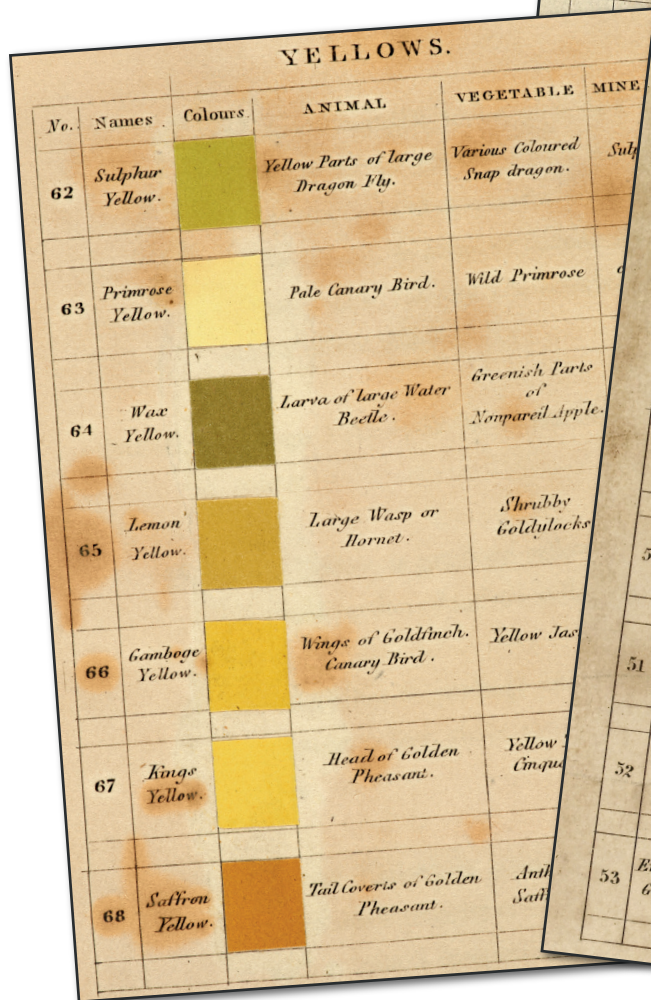 YELLOWS.
No. Names Colours ANIMAL VEGETABLE MINE
62
Sulphur
Yellow.
Yellow Parts of large
Dragon Fly.
Various Coloured
Snap dragon.
Sulp
63
Primrose
Yellow.
Pale Canary Bird.
Wild Primrose
64
Wax
Yellow.
Larva of large Water
Beetle.
Greenish Parts
of
Nonpareil Apple.
65
Lemon
Yellow.
Large Wasp or
Hornet.
Shrubby
Goldylocks
66
Gamboge
Yellow.
Wings of Goldfinch.
Canary Bird.
Yellow Jas
67
Kings
Yellow.
Head of Golden
Pheasant.
Yellow
Cinque
68
Saffron
Yellow.
Tail Coverts of Golden
Pheasant.
Anth
Saff
5
51
52
53